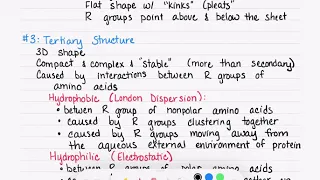 Flat shape w/ "kinks" (pleats)
R groups point above & below the sheet
#3: Tertiary Structure
3D shape
Compact & complex & "stable" (more than secondary)
Caused by interactions between R groups of
amino acids
Hydrophobic (London Dispersion):
• betwen R group of nonpolar amino acids
• caused by R groups clustering together
• caused by R groups moving away from
the aqueous external environment of protein
Hydrophilic (Electrostatic)
R groups of polar amino acids